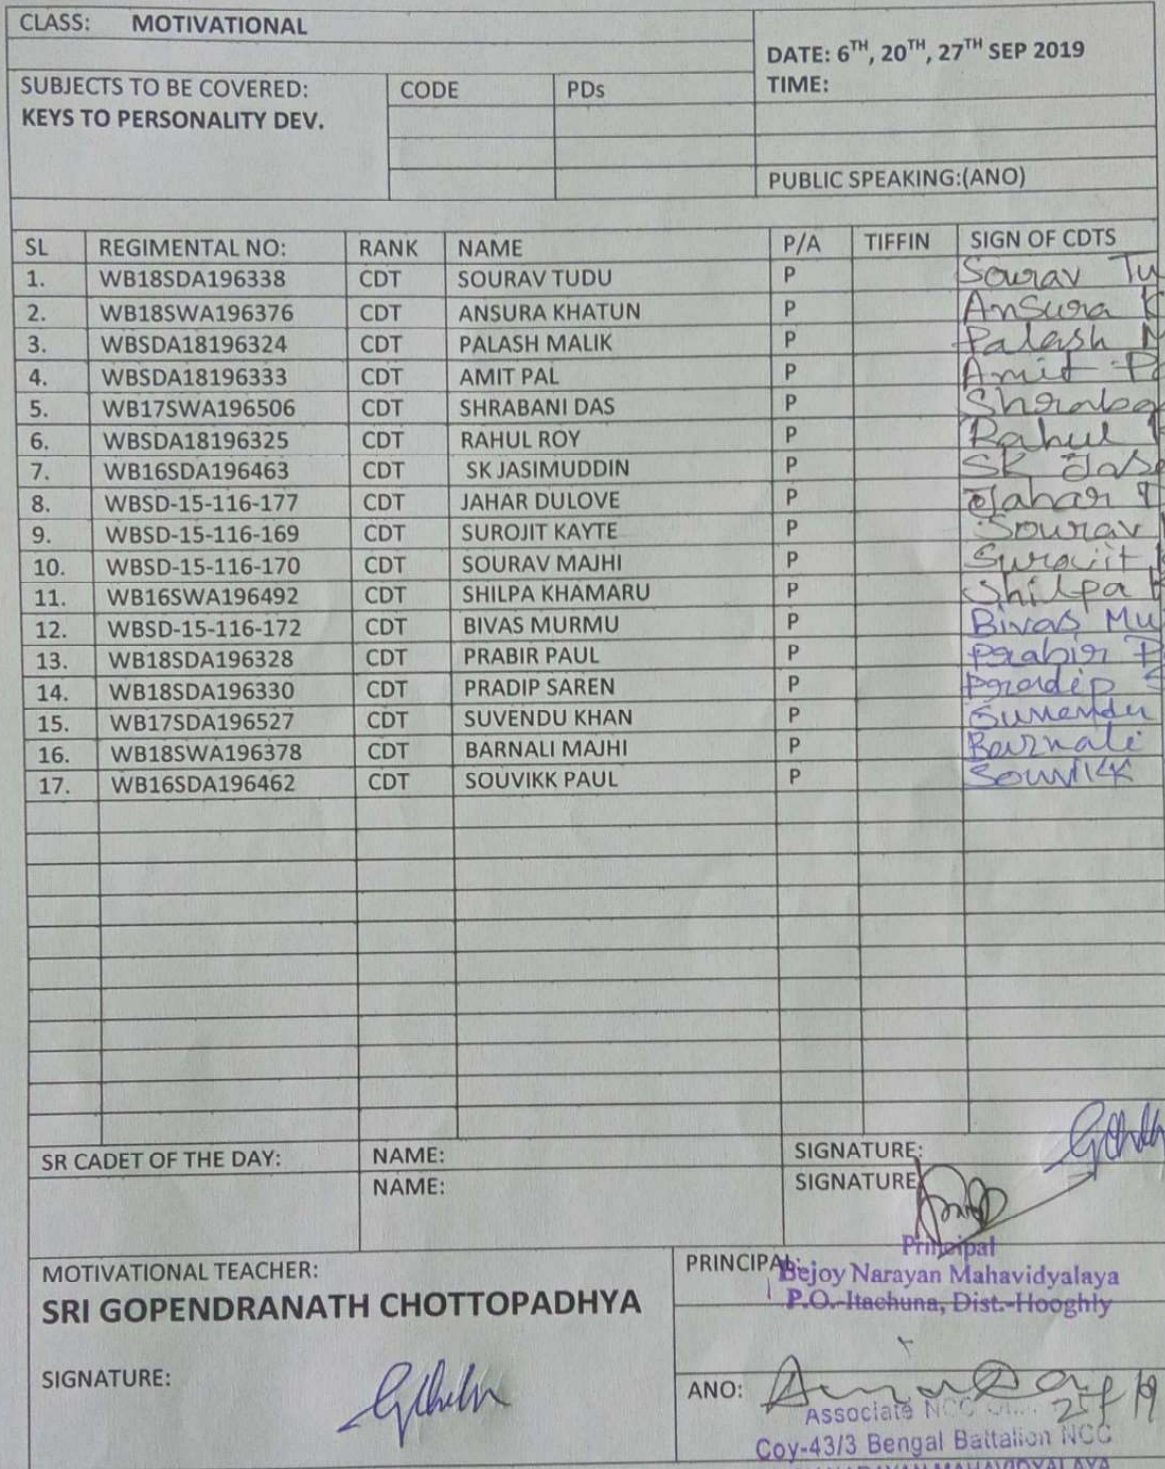 CLASS: MOTIVATIONAL
DATE: 6TH, 20TH, 27TH SEP 2019
TIME:
SUBJECTS TO BE COVERED: CODE PDs
KEYS TO PERSONALITY DEV.
PUBLIC SPEAKING:(ANO)
SL REGIMENTAL NO: RANK NAME P/A TIFFIN SIGN OF CDTS
1. WB18SDA196338 CDT SOURAV TUDU P Sourav Tu
2. WB18SWA196376 CDT ANSURA KHATUN P Ansura K
3. WBSDA18196324 CDT PALASH MALIK P Palash M
4. WBSDA18196333 CDT AMIT PAL P Amit Pa
5. WB17SWA196506 CDT SHRABANI DAS P Shraba
6. WBSDA18196325 CDT RAHUL ROY P Rahul
7. WB16SDA196463 CDT SK JASIMUDDIN P SK Jas
8. WBSD-15-116-177 CDT JAHAR DULOVE P Jahar
9. WBSD-15-116-169 CDT SUROJIT KAYTE P Sourav
10. WBSD-15-116-170 CDT SOURAV MAJHI P Surojit
11. WB16SWA196492 CDT SHILPA KHAMARU P Shilpa
12. WBSD-15-116-172 CDT BIVAS MURMU P Bivas Mu
13. WB18SDA196328 CDT PRABIR PAUL P Prabir P
14. WB18SDA196330 CDT PRADIP SAREN P Pradip S
15. WB17SDA196527 CDT SUVENDU KHAN P Suvendu
16. WB18SWA196378 CDT BARNALI MAJHI P Barnali
17. WB16SDA196462 CDT SOUVIKK PAUL P Souvikk
SR CADET OF THE DAY: NAME: SIGNATURE:
NAME: SIGNATURE
Principal
MOTIVATIONAL TEACHER: PRINCIPAL: Bejoy Narayan Mahavidyalaya
SRI GOPENDRANATH CHOTTOPADHYA P.O.-Itachuna, Dist.-Hooghly
SIGNATURE: ANO:
Associate NCC
Coy-43/3 Bengal Battalion NCC
NARAYAN MAHAVIDYALAYA